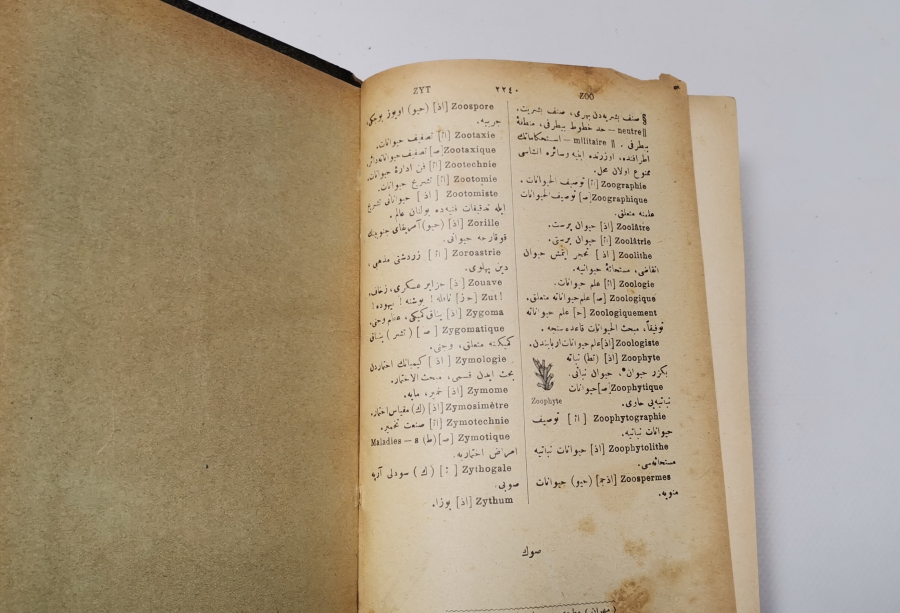 ZYT ٢٢٤٠ ZOO
§ صنف بشریه‌دن بهری، صنف بشریت.
‖ neutre — حد خطوط بیطرفی، منطقهٔ
بیطرفی. ‖ militaire — استحکاماتك
اطرافنده، اوزرنده ابنیه وسائره انشاسی
ممنوع اولان محل.
Zoographie [اژ] توصیف الحیوانات.
Zoographique [ص] توصیف الحیوانات
علمنه متعلق.
Zoolâtre [اذ] حیوان پرست.
Zoolâtrie [اژ] حیوان پرستی.
Zoolithe [اذ] تحجر ایتمش حیوان
انقاضی، مستحاثهٔ حیوانیه.
Zoologie [اژ] علم حیوانات.
Zoologique [ص] علم حیواناته متعلق.
Zoologiquement [ح] علم حیواناته
توفیقاً، مبحث الحیوانات قاعده‌سنجه.
Zoologiste [اذ] علم حیوانات اربابندن.
Zoophyte [اذ] (تط) نباته
بکزر حیوان، حیوان نباتی.
Zoophytique [ص] حیوانات
نباتیه‌یی حاوی.
Zoophyte
Zoophytographie [اژ] توصیف
حیوانات نباتیه.
Zoophytolithe [اذ] حیوانات نباتیه
مستحاثه‌سی.
Zoospermes [اذج] (حیو) حیوانات
منویه.
Zoospore [اذ] (حیو) اویوز بوجکی،
جربیه.
Zootaxie [اژ] تصنیف حیوانات.
Zootaxique [ص] تصنیف حیواناته دائر.
Zootechnie [اژ] فن ادارهٔ حیوانات.
Zootomie [اژ] تشریح حیوانات.
Zootomiste [اذ] حیواناتی تشریح
ایله تدقیقات فنیه‌ده بولنان عالم.
Zorille [اذ] (حیو) آمریقای جنوبینك
قوقارجه حیوانی.
Zoroastrie [اژ] زردشتی مذهبی،
دین پهلوی.
Zouave [اذ] جزایر عسکری، زخاف.
Zut! [حز] نافله! بوشنه! بیهوده!
Zygoma [اذ] یناق کمیکی، عظم وجنی.
Zygomatique [ص] (تشر) یناق
کمیکنه متعلق، وجنی.
Zymologie [اژ] کیمیانك اختماردن
بحث ایدن قسمی، مبحث الاختمار.
Zymome [اذ] خمیر، مایه.
Zymosimètre [اذ] (ك) مقیاس اختمار.
Zymotechnie [اژ] صنعت تخمیر.
Zymotique [ص] (ط) Maladies — s
امراض اختماریه.
Zythogale [اژ] (ك) سودلی آرپه
صویی.
Zythum [اذ] بوزا.
صوك